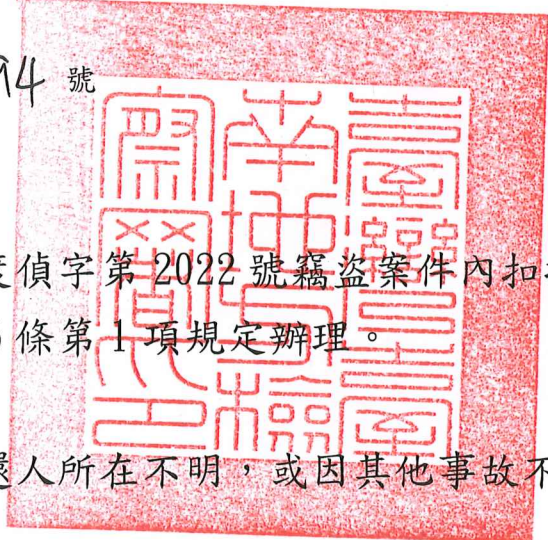 94 號
度偵字第 2022 號竊盜案件內扣
條第 1 項規定辦理。
還人所在不明，或因其他事故不
臺灣臺
南地方檢
察署之印